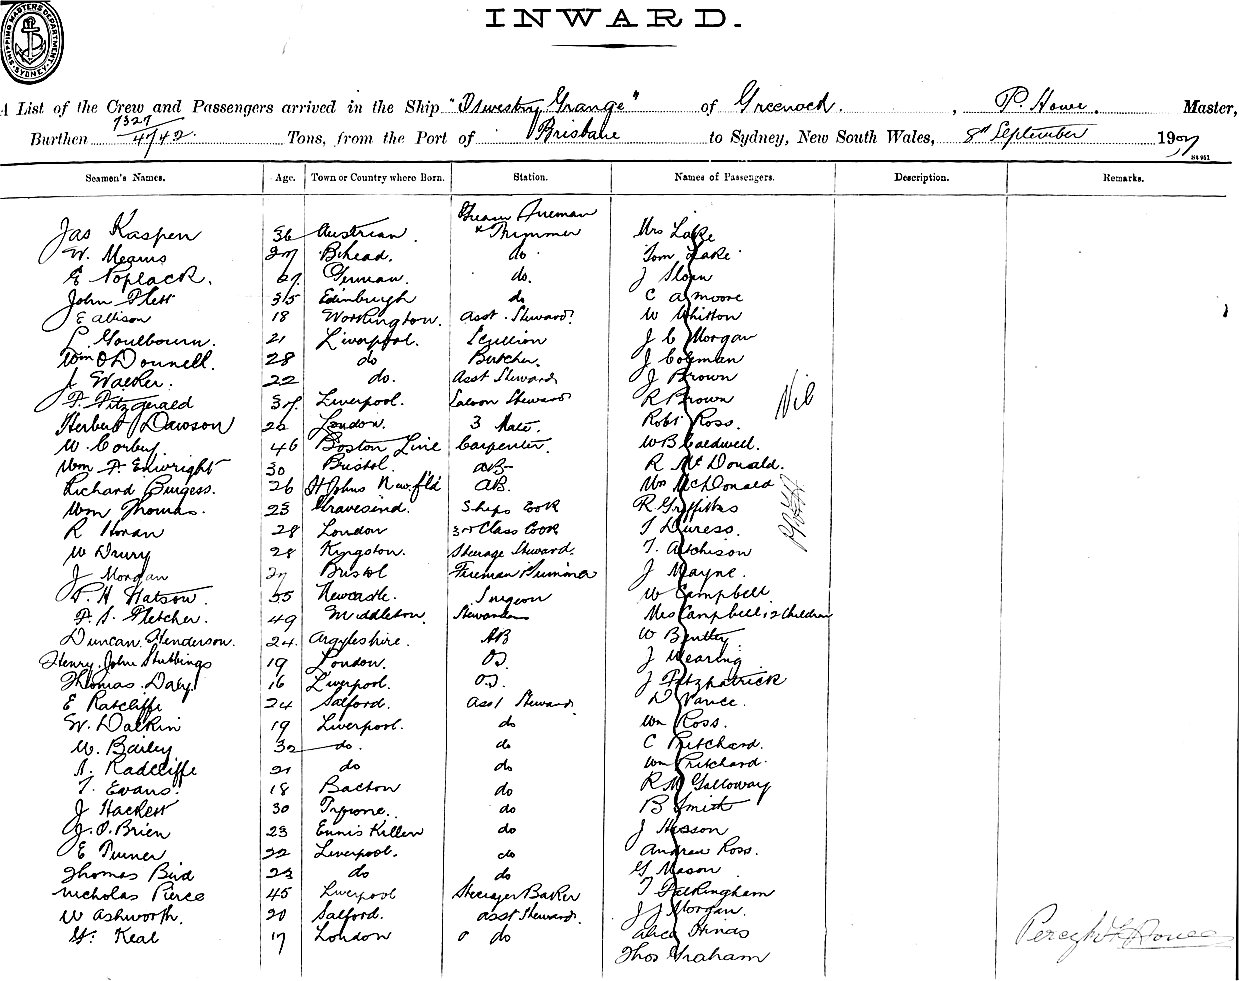 INWARD.
SHIPPING MASTERS DEPARTMENT. SYDNEY.
A List of the Crew and Passengers arrived in the Ship "Oswestry Grange" of Greenock. , P. Howe. Master,
7327
Burthen 4742 Tons, from the Port of Brisbane to Sydney, New South Wales, 8th September 1907
Seamen's Names. Age. Town or Country where Born. Station. Names of Passengers. Description. Remarks.
Fireman
Jas Kaspen 36 Austrian. & Trimmer Mrs Lake
W. Meams 27 B'head. do Tom Lake
German. do. J Sloan
John Plett 35 Edinburgh do C a moore
E allison 18 Workington. Asst. Steward. W Whitton
L. Goulbourn. 21 Liverpool. Scullion J C Morgan
Wm O'Donnell. 28 do Butcher. J Coleman
A Walker. 22 do. Asst Steward J Brown
F. Fitzgerald 37 Liverpool. Saloon Steward R Brown
Nil
Herbert Dawson 22 London. 3 Mate. Robt Ross.
W. Corbey. 46 Boston Line Carpenter. W B Caldwell.
Wm F. Enwright 30 Bristol. AB R McDonald.
Richard Burgess. 26 St Johns Newfld AB. Wm McDonald
Wm Thomas. 23 Gravesend. Ships Cook R Griffiths
R Horan 28 London 3rd Class Cook T Duress.
W Drury 28 Kingston. Steerage Steward. T. Aitchison
J Morgan 27 Bristol Fireman Trimmer J Mayne.
P. H Hatson. 55 Newcastle. Surgeon W Campbell
F. S. Fletcher. 49 Middleton. Stewardess Mrs Campbell, & 2 Children
Duncan Henderson. 24. Argyleshire. AB W Bentley.
Henry John Stubbings 19 London. OS. J Wearing
Thomas Daly. 16 L'verpool. OS. J Fitzpatrick
E Ratcliffe 24 Salford. Asst Steward D Vance.
W. Dalkin 19 Liverpool. do Wm Ross.
W. Bailey 32 do. do C Pritchard.
A. Radcliffe 21 do do Wm Pritchard.
T. Evans. 18 Bacton do R M Galloway
J Hackett 30 Tyrone. do B Smith
J. O'Brien 23 Ennis Killen do J Hesson
E Turner 22 Liverpool. do Andrew Ross.
Thomas Bird 23 do do G Mason
Nicholas Pierce 45 Liverpool Steerage Baker T Falkingham
W Ashworth. 20 Salford. asst Steward. J J Morgan.
Keal 17 London do Alice Hinds
Thos Graham